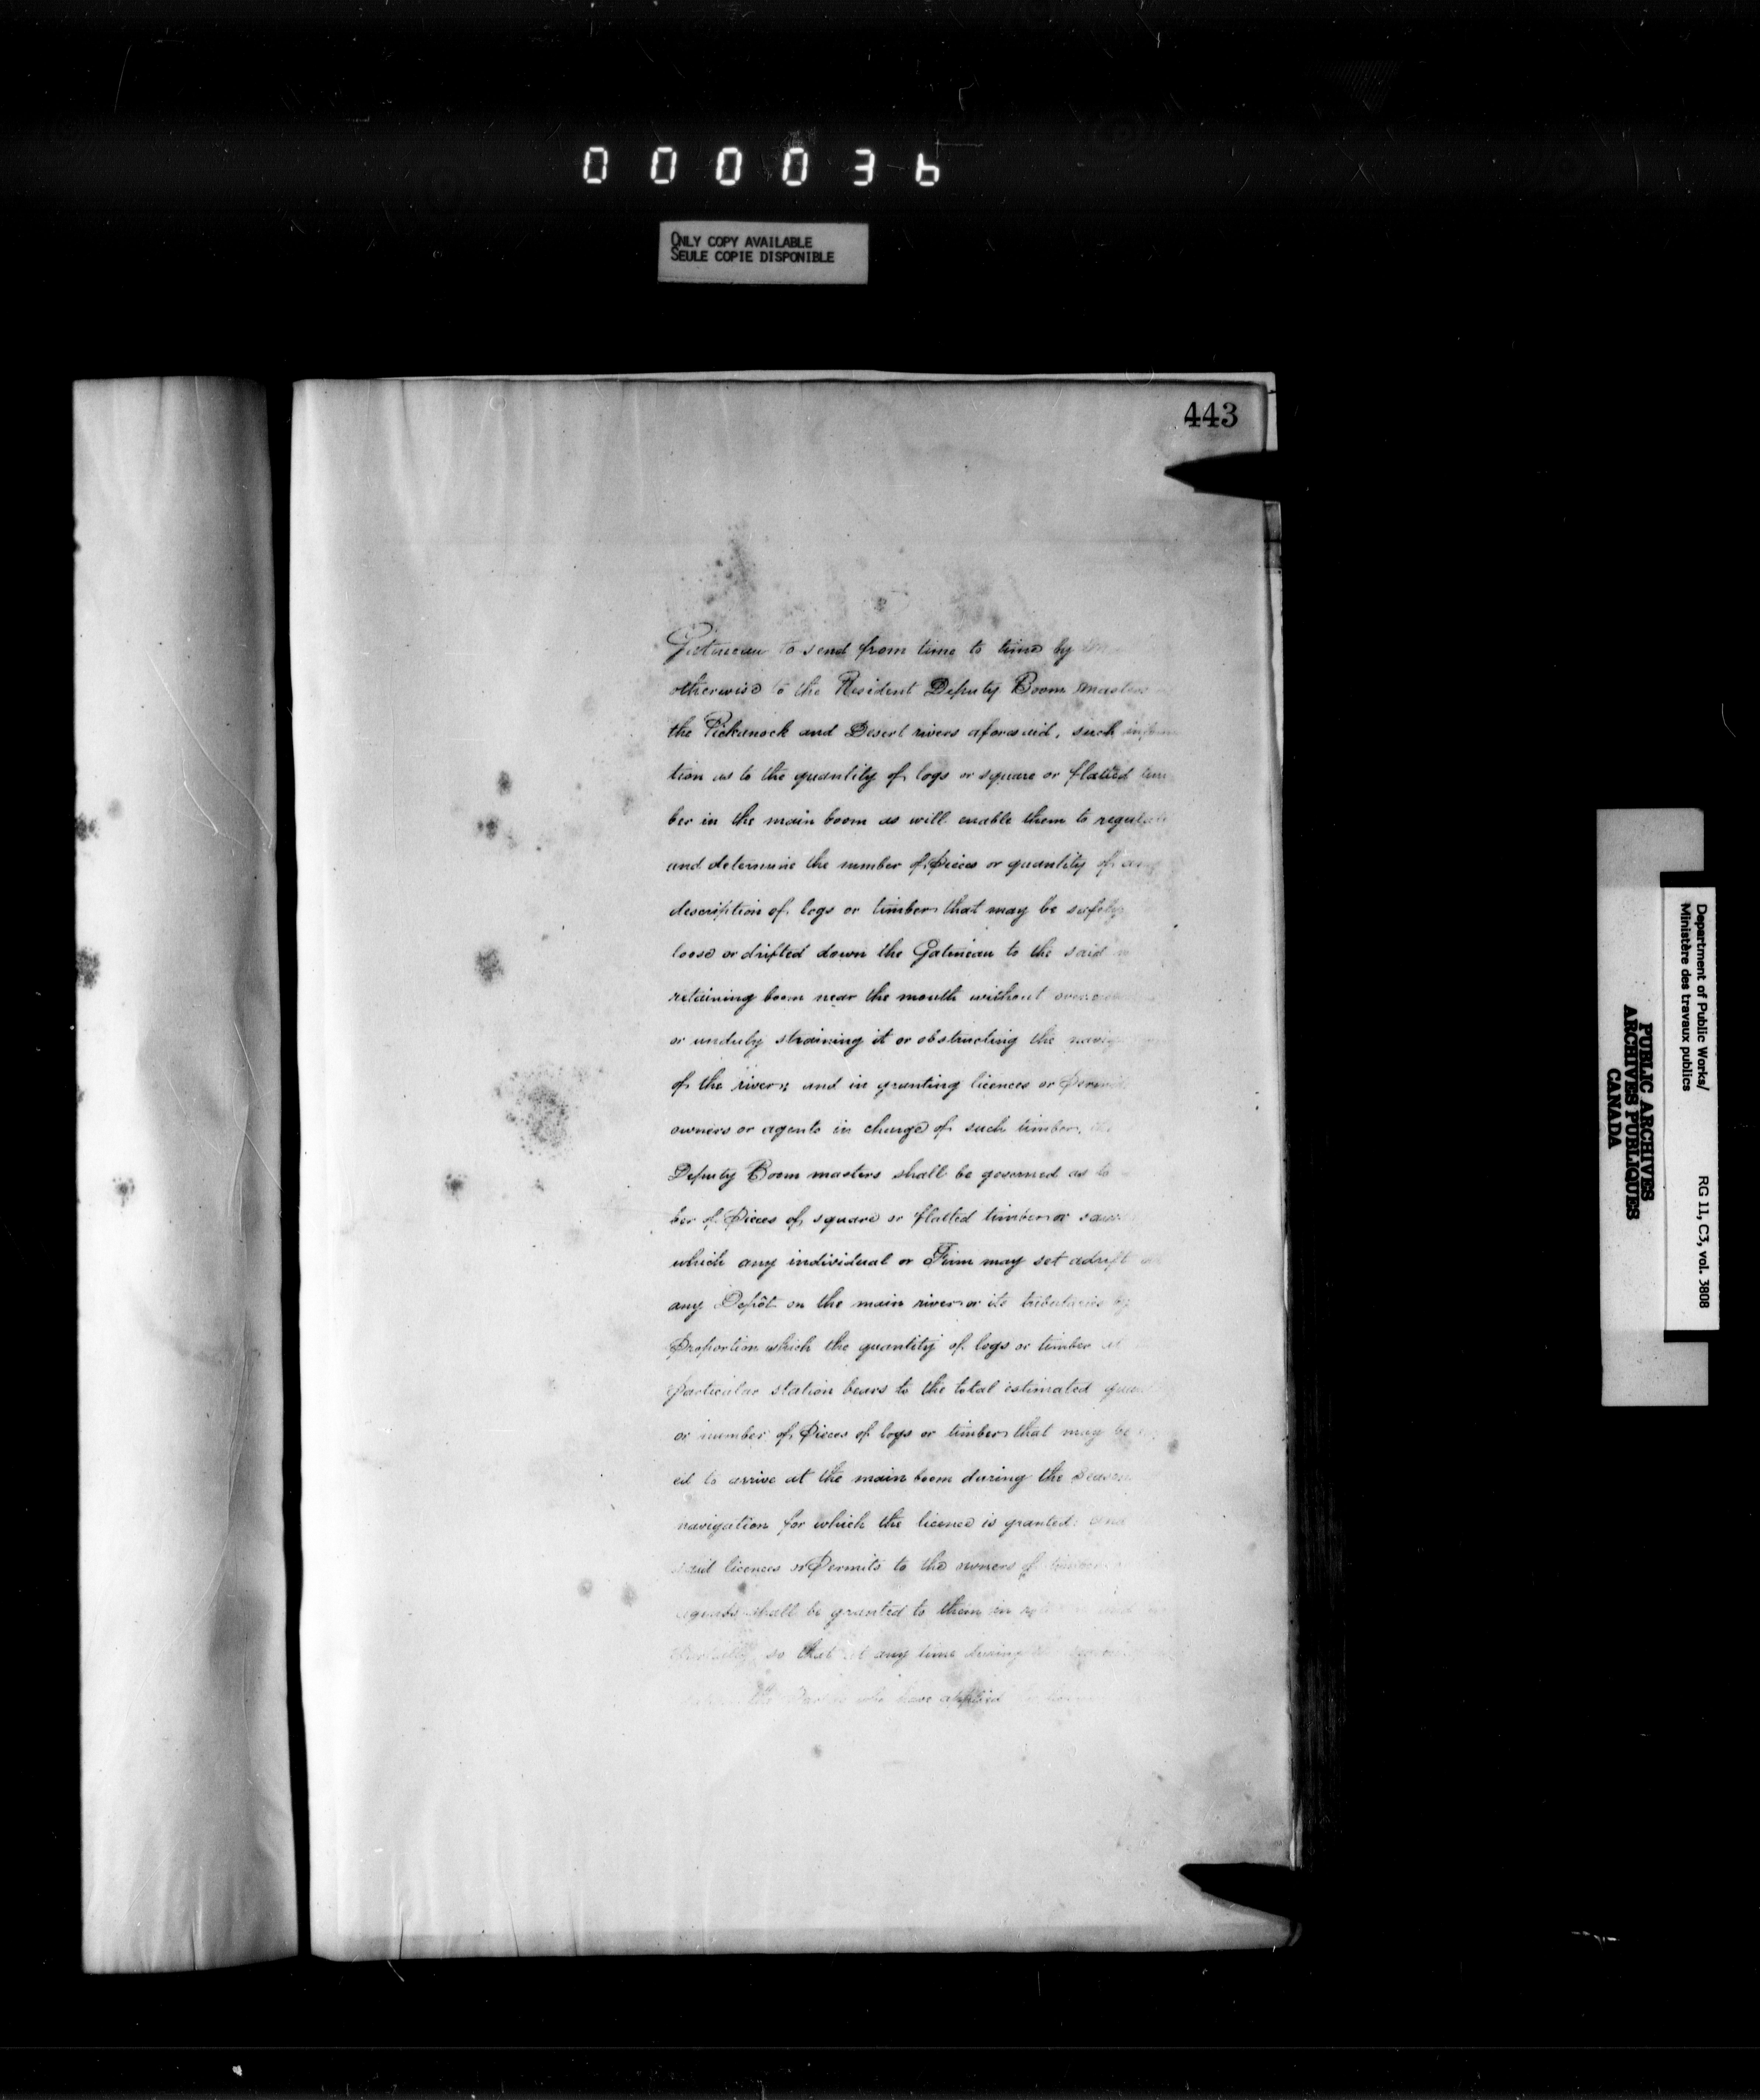 000036
ONLY COPY AVAILABLE
SEULE COPIE DISPONIBLE
443
Gatineau to send from time to time by
otherwise to the Resident Deputy Boom masters
the Pickanock and Desert rivers aforesaid, such inform
tion as to the quantity of logs or square or flatted tim
ber in the main boom as will enable them to regulate
and determine the number of pieces or quantity of any
description of logs or timber that may be safely
loose or drifted down the Gatineau to the said
retaining boom near the mouth without
or unduly straining it or obstructing the navig
of the river; and in granting licences or Permits
owners or agents in charge of such timber, the
Deputy Boom masters shall be governed as to
ber of Pieces of square or flatted timber or saw
which any individual or Firm may set adrift at
any Depôt on the main river or its tributaries by
Proportion which the quantity of logs or timber at
Particular station bears to the total estimated quant
or number of Pieces of logs or timber that may be
ed to arrive at the main boom during the Season
navigation for which the licence is granted: and
said licences or Permits to the owners of timber
agents shall be granted to them in
so that at any time during the
the Parties who have applied
Department of Public Works/
Ministère des travaux publics
RG 11, C3, vol. 3808
PUBLIC ARCHIVES
ARCHIVES PUBLIQUES
CANADA